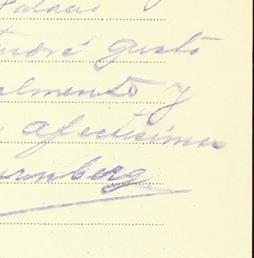 Palacio
tendré gusto
almente y
afectísimo
urnberg